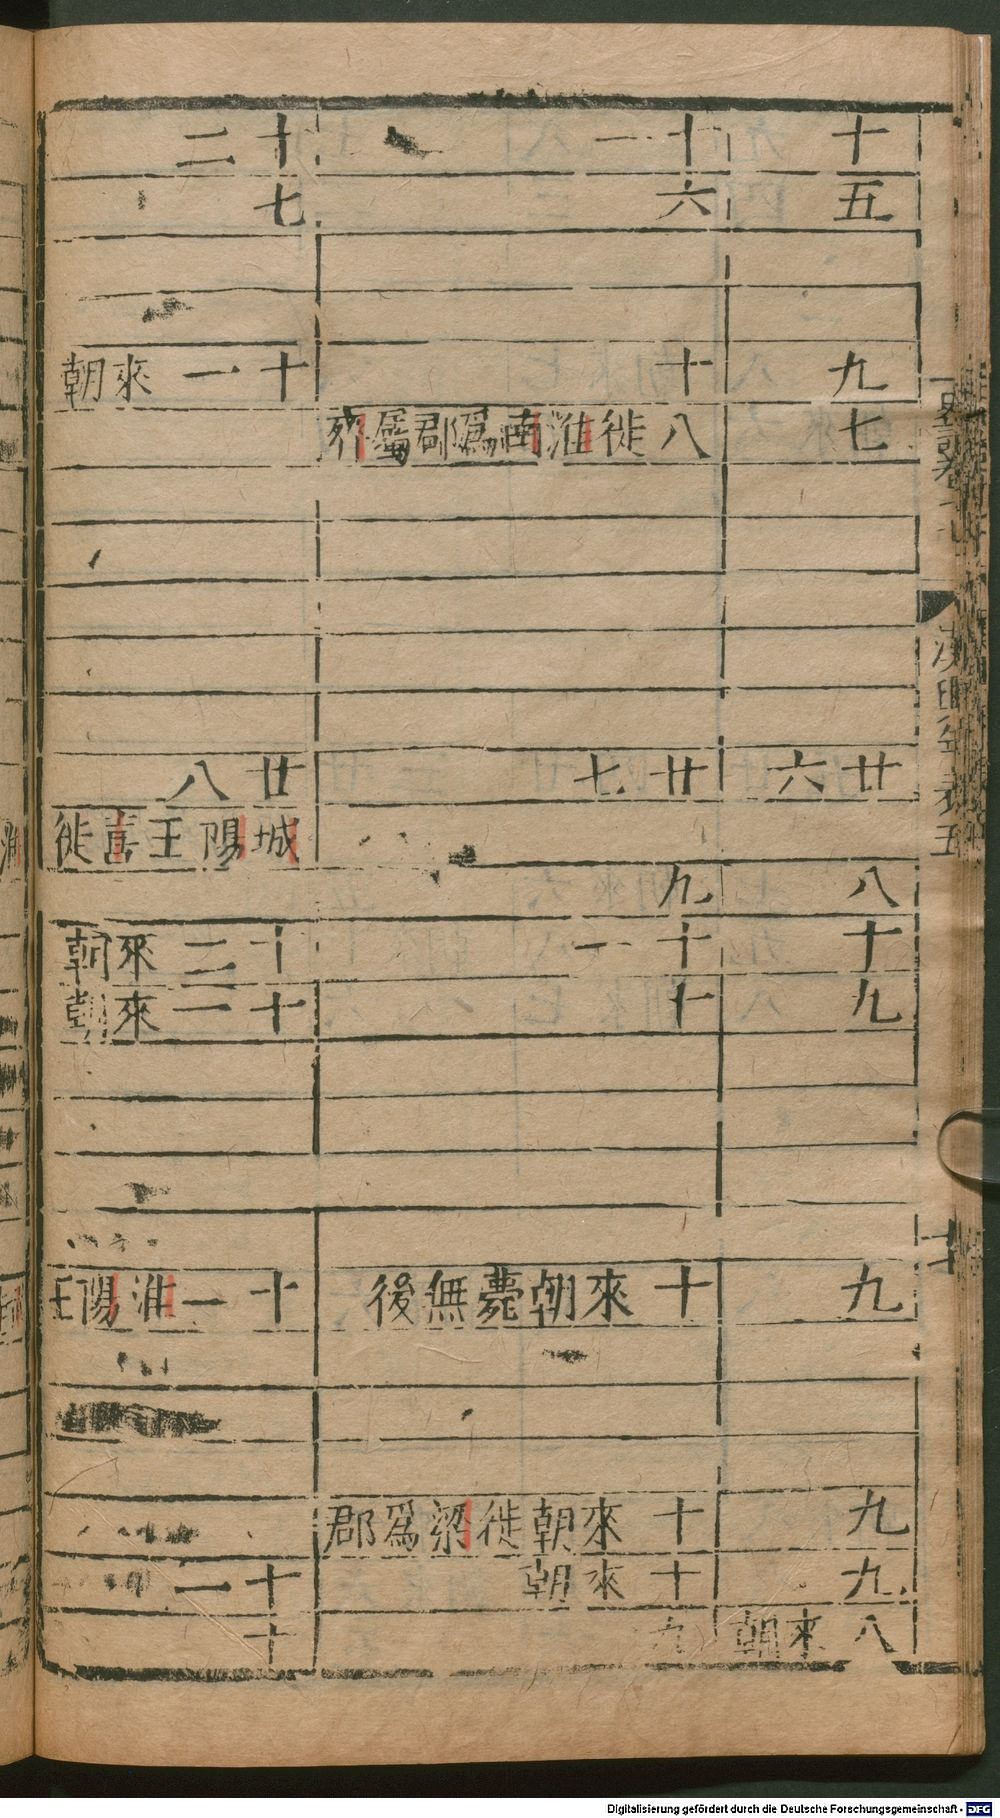 史記卷十七
漢興年表五
十
五
九
七
廿六
八
十
九
九
九
九
八來朝
十一
六
十
八徙淮南爲郡屬齊
廿七
九
十一
十
十來朝薨無後
十來朝徙梁爲郡
十來朝
九
十二
七
十一來朝
廿八
城陽王喜徙
十二來朝
十一來朝
十一淮陽王
十一
十
Digitalisierung gefördert durch die Deutsche Forschungsgemeinschaft - DFG